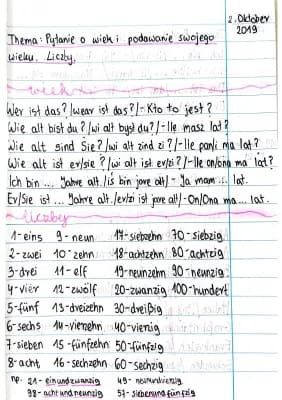 2. Oktober
2019
Thema: Pytanie o wiek i podawanie swojego
wieku. Liczby.
wiek
Wer ist das? /wear ist das?/ - Kto to jest?
Wie alt bist du? /wi alt byst du?/ - Ile masz lat?
Wie alt sind Sie? /wi alt zind zi?/ - Ile pan/i ma lat?
Wie alt ist er/sie? /wi alt ist er/zi?/ - Ile on/ona ma lat?
Ich bin ... Jahre alt. /iś bin jore alt/ - Ja mam ... lat.
Er/Sie ist ... Jahre alt. /er/zi ist jore alt/ - On/Ona ma ... lat.
liczby
1-eins 9-neun 17-siebzehn 70-siebzig
2-zwei 10-zehn 18-achtzehn 80-achtzig
3-drei 11-elf 19-neunzehn 90-neunzig
4-vier 12-zwölf 20-zwanzig 100-hundert
5-fünf 13-dreizehn 30-dreißig
6-sechs 14-vierzehn 40-vierzig
7-sieben 15-fünfzehn 50-fünfzig
8-acht 16-sechzehn 60-sechzig
np. 21-einundzwanzig 49-neunundvierzig
98-achtundneunzig 57-siebenundfünfzig